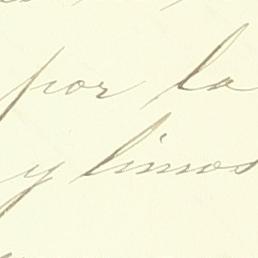 por la
y limos